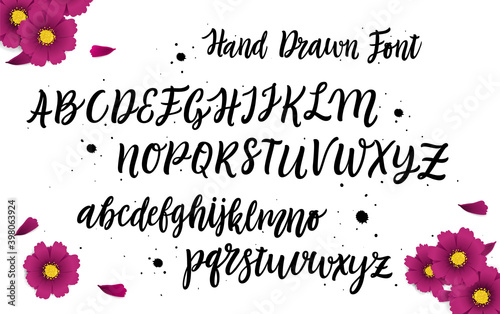 Hand Drawn Font
ABCDEFGHIJKLM
NOPQRSTUVWXYZ
abcdefghijklmno
pqrstuvwxyz
Adobe Stock | #398063924